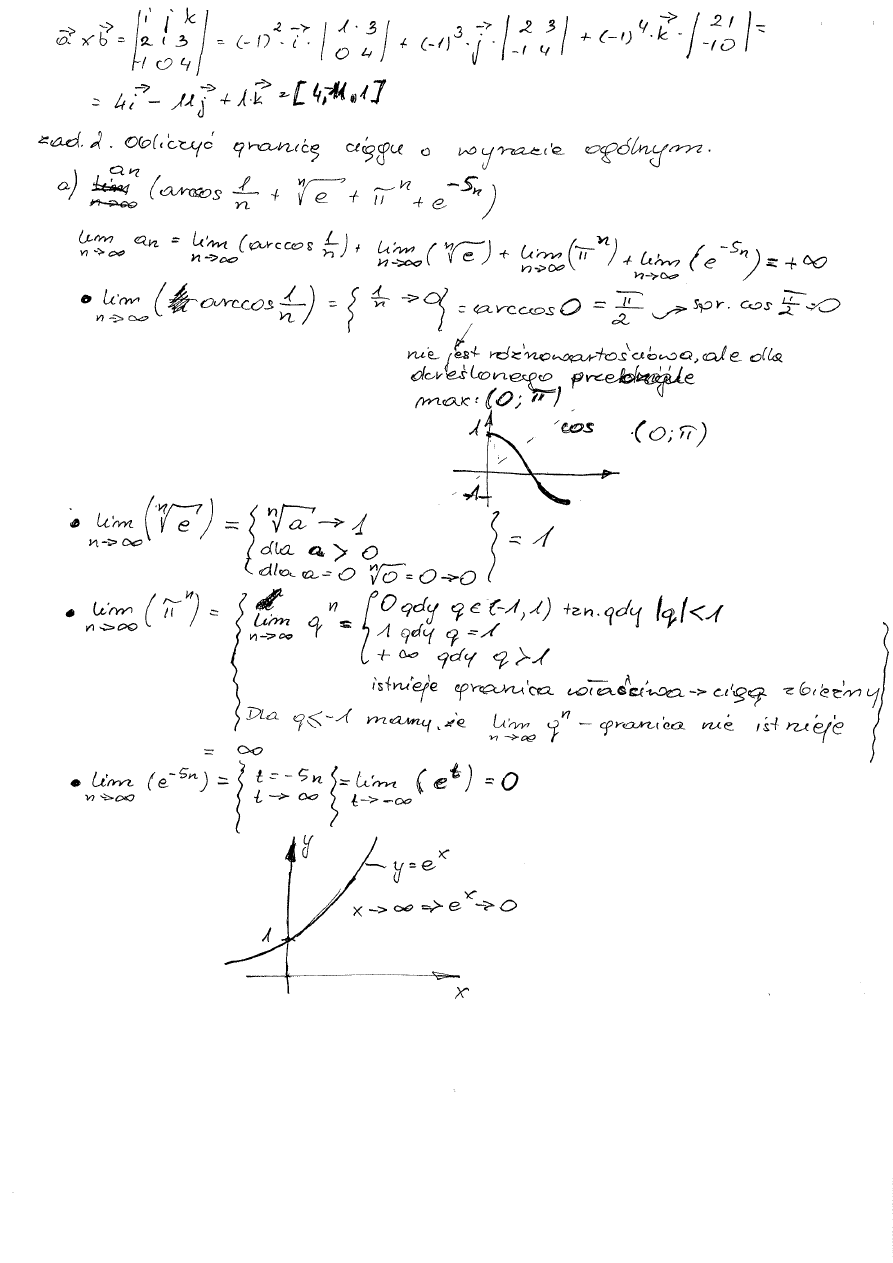 a⃗ × b⃗ = |i j k; 2 1 3; -1 0 4| = (-1)² · i⃗ · |1 3; 0 4| + (-1)³ · j⃗ · |2 3; -1 4| + (-1)⁴ · k⃗ · |2 1; -1 0| =
= 4i⃗ - 11j⃗ + 1·k⃗ = [4, -11, 1]
zad. 2. Obliczyć granicę ciągu o wyrazie ogólnym.
a) an (arccos 1/n + ⁿ√e + πⁿ + e⁻⁵ⁿ)
lim n→∞ an = lim n→∞ (arccos 1/n) + lim n→∞ (ⁿ√e) + lim n→∞ (πⁿ) + lim n→∞ (e⁻⁵ⁿ) = +∞
• lim n→∞ (arccos 1/n) = { 1/n → 0 } = arccos 0 = π/2 → spr. cos π/2 = 0
nie jest różnowartościowa, ale dla
określonego przedziale
max: (0; π)
1 cos (0; π)
-1
• lim n→∞ (ⁿ√e) = { ⁿ√a → 1 } = 1
dla a > 0
dla a = 0 ⁿ√0 = 0 → 0
• lim n→∞ (πⁿ) = { lim n→∞ qⁿ = { 0 gdy q ∈ (-1, 1) tzn. gdy |q| < 1
1 gdy q = 1
+∞ gdy q > 1
istnieje granica właściwa → ciąg zbieżny
Dla q ≤ -1 mamy, że lim n→∞ qⁿ - granica nie istnieje }
= ∞
• lim n→∞ (e⁻⁵ⁿ) = { t = -5n t → ∞ } = lim t→-∞ (eᵗ) = 0
y
y = eˣ
x → ∞ ⇒ eˣ → 0
1
x